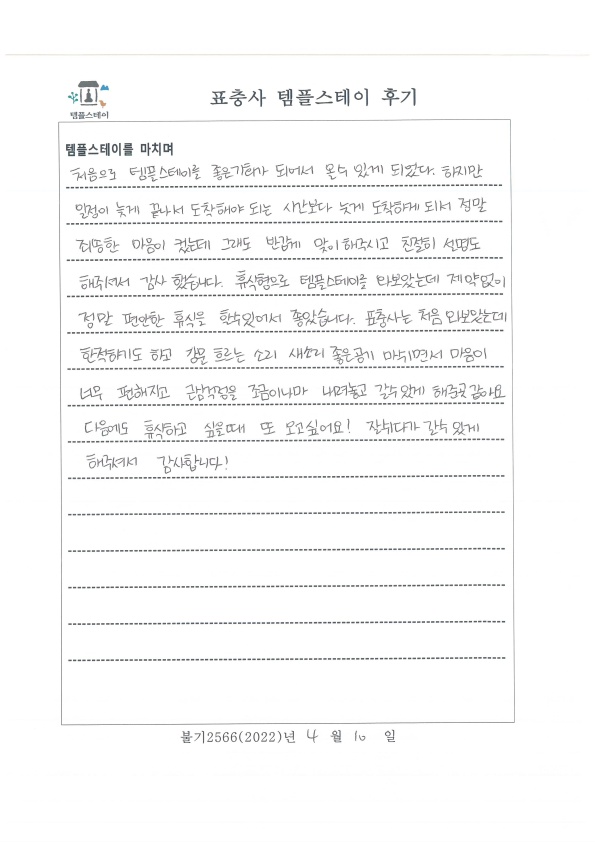 표충사 템플스테이 후기
템플스테이
템플스테이를 마치며
처음으로 템플스테이를 좋은기회가 되어서 올수 있게 되었다. 하지만
일정이 늦게 끝나서 도착해야 되는 시간보다 늦게 도착하게 되서 정말
죄송한 마음이 컸는데 그래도 반갑게 맞이해주시고 친절히 설명도
해주셔서 감사 했습니다. 휴식형으로 템플스테이를 와보았는데 제약없이
정말 편안한 휴식을 할수있어서 좋았습니다. 표충사는 처음 와보았는데
한적하기도 하고 강물 흐르는 소리 새소리 좋은공기 마쉬면서 마음이
너무 편해지고 근심걱정을 조금이나마 내려놓고 갈수있게 해준곳같아요
다음에도 휴식하고 싶을때 또 오고싶어요! 잘쉬다가 갈수 있게
해주셔서 감사합니다!
불기2566(2022)년 4 월 10 일